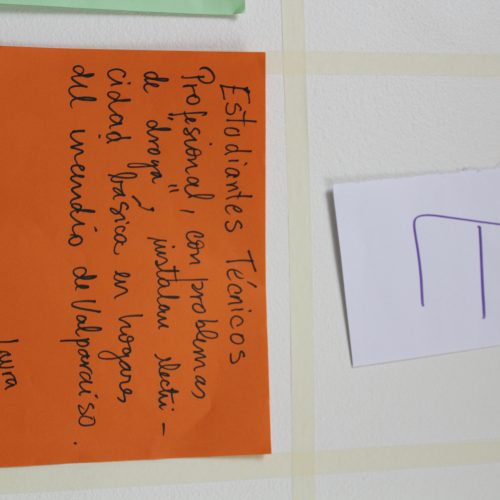 Estudiantes Técnicos
Profesional, con problemas
de "droga", instalan electri-
cidad básica en hogares
del incendio de Valparaíso.
Laura